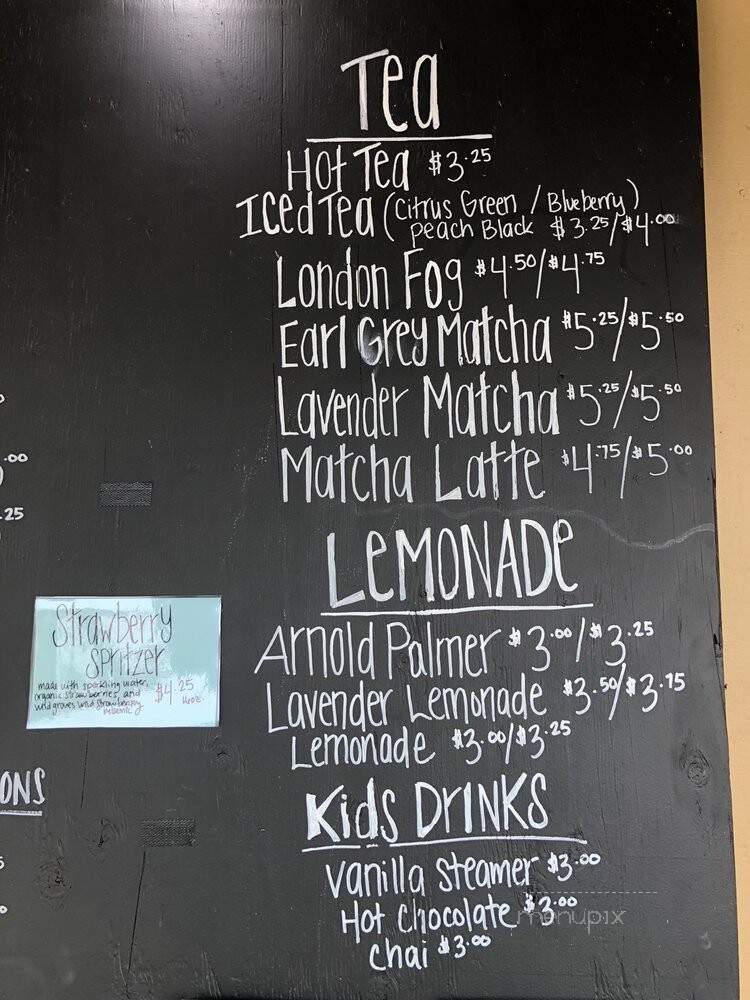 Tea
Hot Tea $3.25
Iced Tea (Citrus Green / Blueberry)
peach Black $3.25/$4.00
London Fog $4.50/$4.75
Earl Grey Matcha $5.25/$5.50
Lavender Matcha $5.25/$5.50
Matcha Latte $4.75/$5.00
LeMONADe
Arnold Palmer $3.00/$3.25
Lavender Lemonade $3.50/$3.75
Lemonade $3.00/$3.25
Kids DrINKS
Vanilla Steamer $3.00
Hot Chocolate $3.00
Chai $3.00
Strawberry
Spritzer
made with sparkling water,
organic strawberries, and
wild strawberry
$4.25
16oz.
.00
.25
ONS
menupix